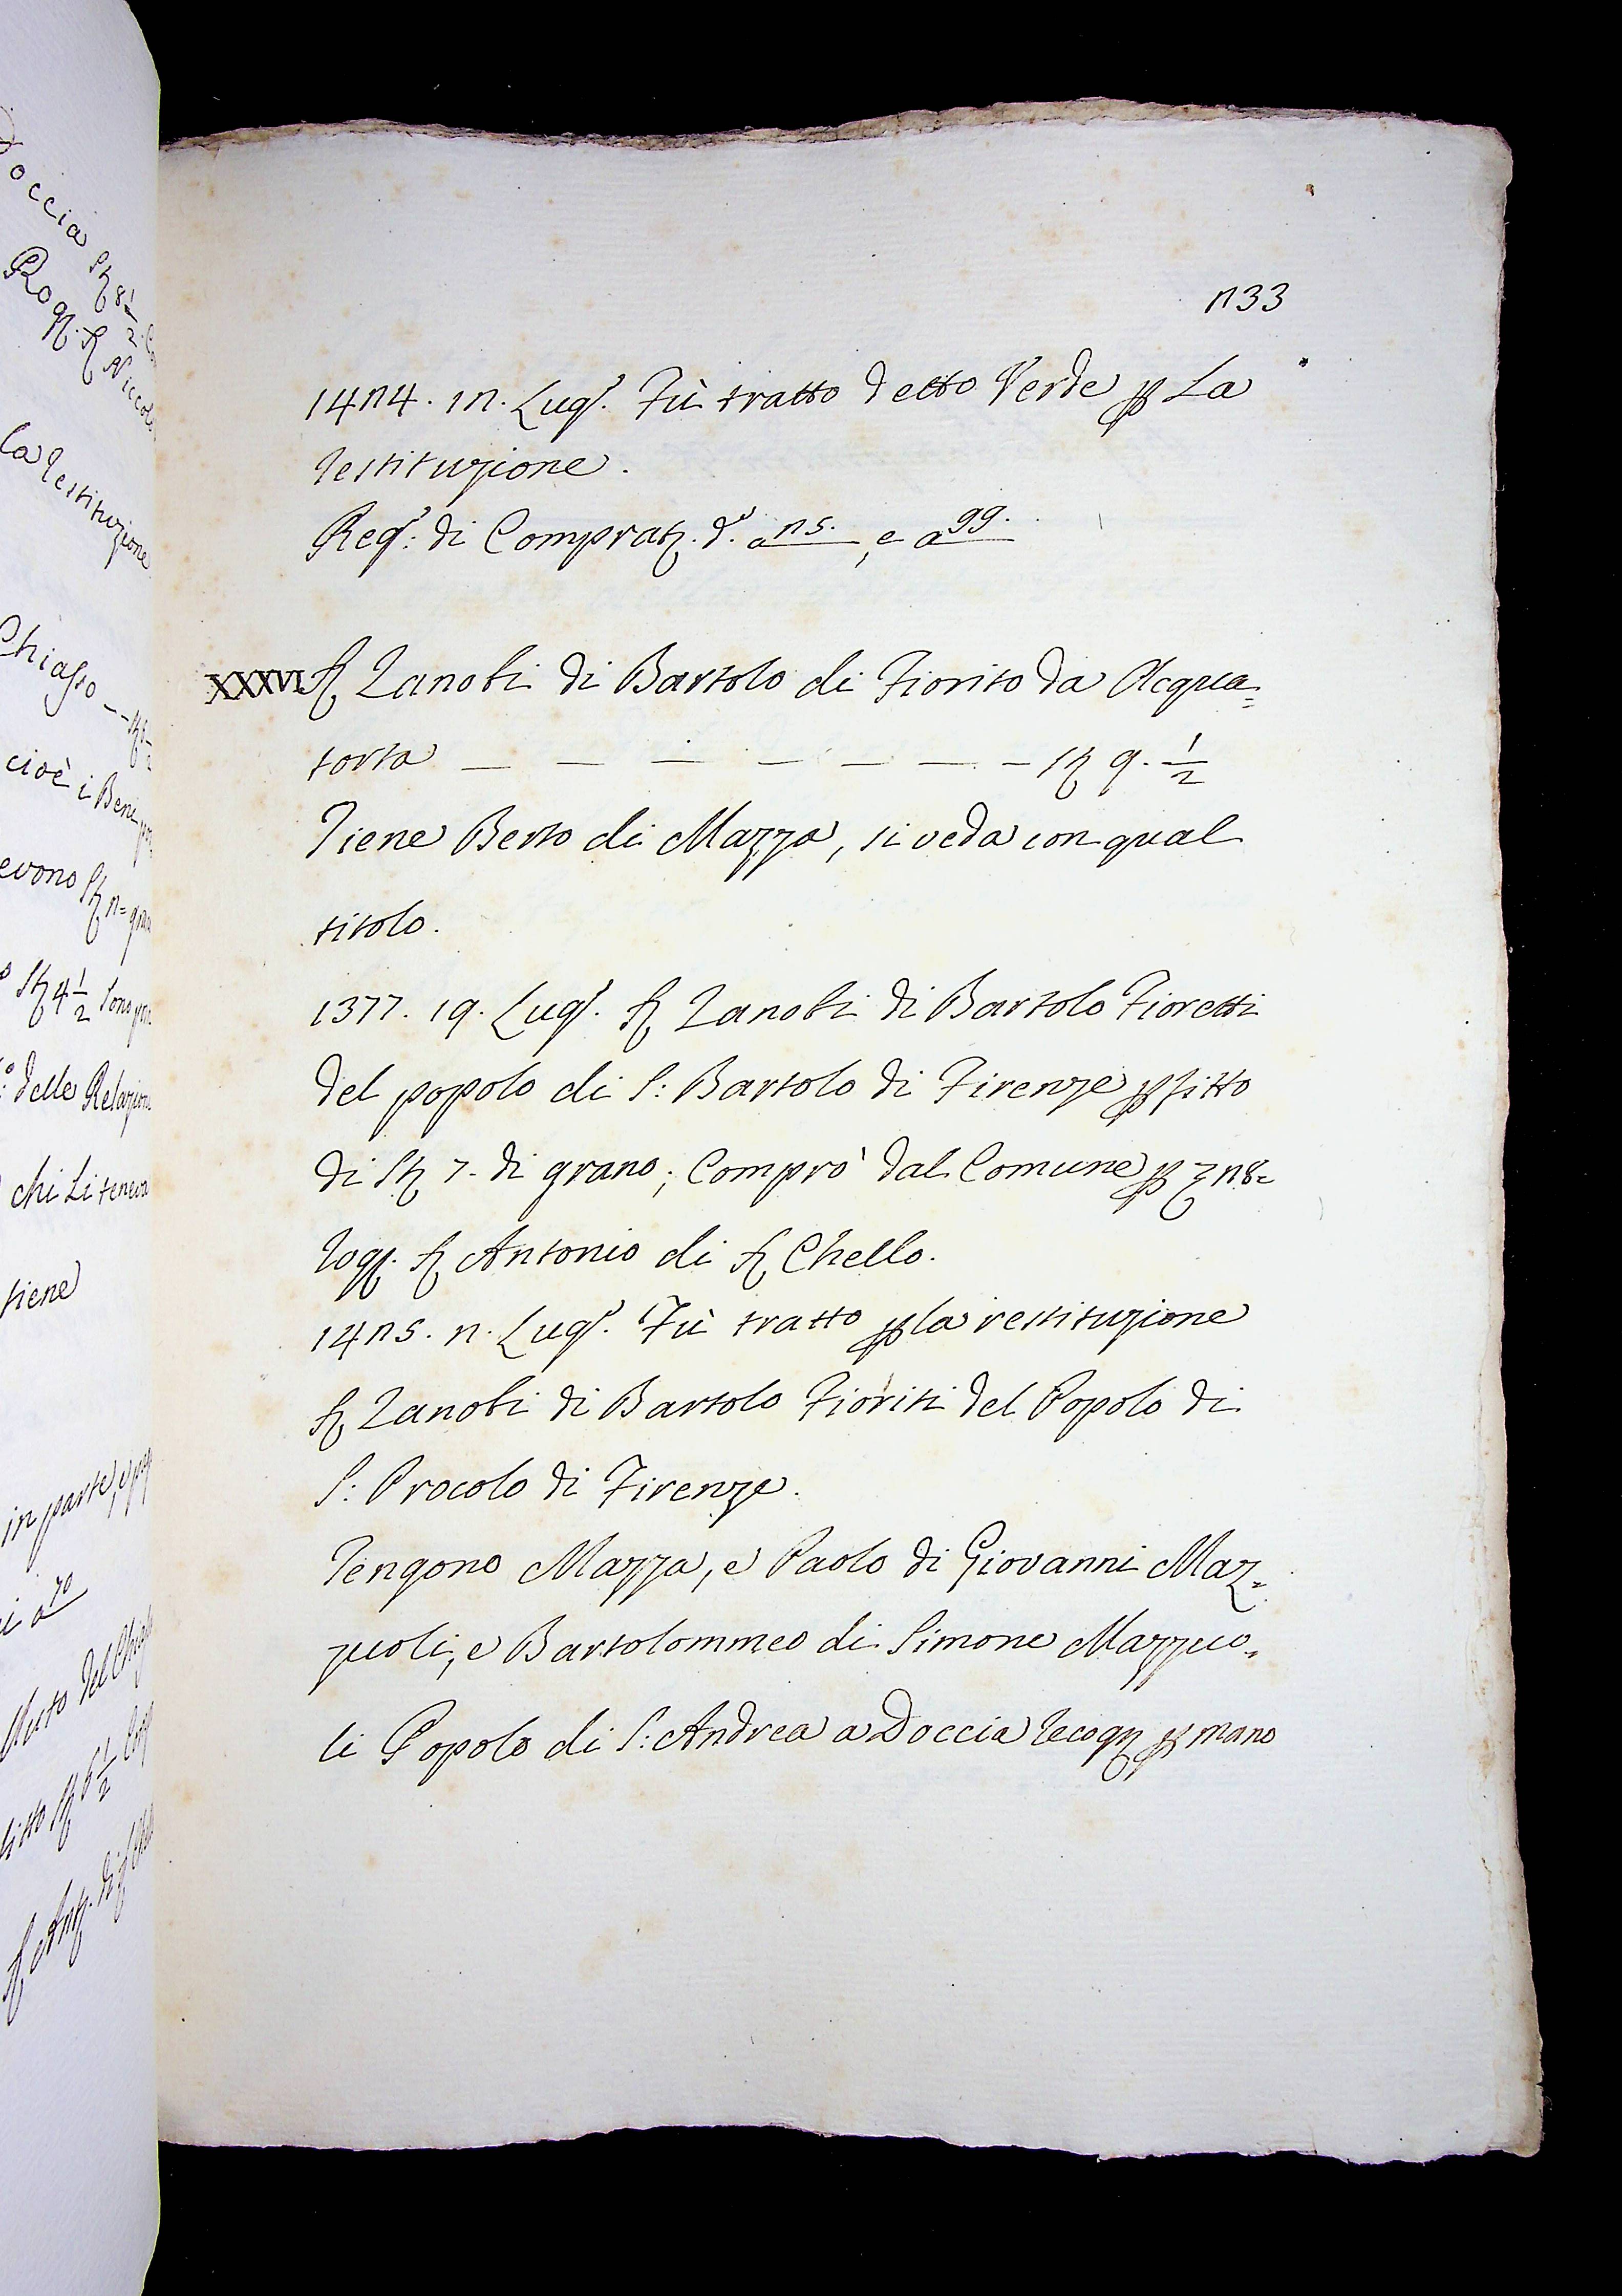 occia St 8 1/2
Rog. Sr Niccolo
la restituzione
Chiasso
cioè i Beni
evono St 2
St 4 1/2 sono
delle Relazion
chi li teneva
tiene
in parte, e
a 70
Muto del
fitto St 6 1/2
233
1424. 12. Lugo. Fù tratto detto Verde p La
restituzione.
Rego: di Comprat. do. a 25. , e a 99.
XXXVI Sr Zanobi di Bartolo di Fiorito da Acqua=
torta — — — — — — — St 9. 1/2
Tiene Berto di Mazza, si veda con qual
titolo.
1377. 19. Lugo. Sr Zanobi di Bartolo Fioretti
del popolo di S: Bartolo di Firenze p fitto
di St 7. di grano; Comprò dal Comune p 28=
rog. Sr Antonio di Sr Chello.
1425. 2. Lugo. Fù tratto p la restituzione
Sr Zanobi di Bartolo Fioriti del Popolo di
S: Procolo di Firenze.
Tengono Mazza, e Paolo di Giovanni Maz=
zuoli, e Bartolommeo di Simone Mazzuo=
li Popolo di S: Andrea a Doccia recog p mano